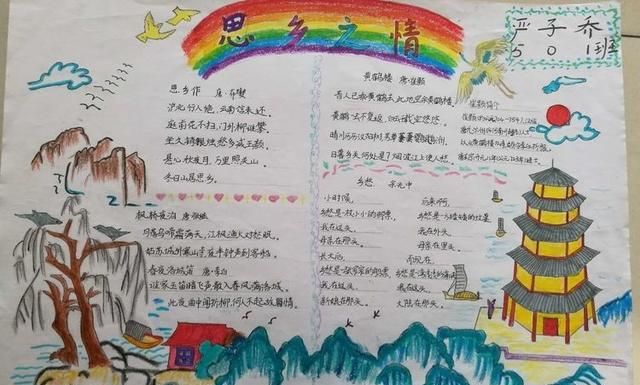 思乡之情
严子乔
501班
思乡作 唐·
沪北行人绝,云南信未还。
庭前花不扫,门外柳谁攀。
坐久销银烛愁多减玉颜。
悬心秋夜月,万里照关山。
冬日山居思乡。
枫桥夜泊 唐张继
月落乌啼霜满天,江枫渔火对愁眠。
姑苏城外寒山寺,夜半钟声到客船。
春夜洛城笛 唐·李白
谁家玉笛暗飞声散入春风满洛城。
此夜曲中闻折柳,何人不起故园情。
黄鹤楼 唐·崔颢
昔人已乘黄鹤去,此地空余黄鹤楼
黄鹤一去不复返,白云千载空悠悠。
晴川历历汉阳树,芳草萋萋鹦鹉洲。
日暮乡关何处是?烟波江上使人愁。
崔颢简介
乡愁 余光中
小时候,
乡愁是一枚小小的邮票,
我在这头,
母亲在那头。
长大后,
乡愁是一张窄窄的船票,
我在这头,
新娘在那头。
后来啊,
乡愁是一方矮矮的坟墓
我在外头,
母亲在里头。
而现在,
乡愁是一湾浅浅的海峡
我在这头,
大陆在那头。